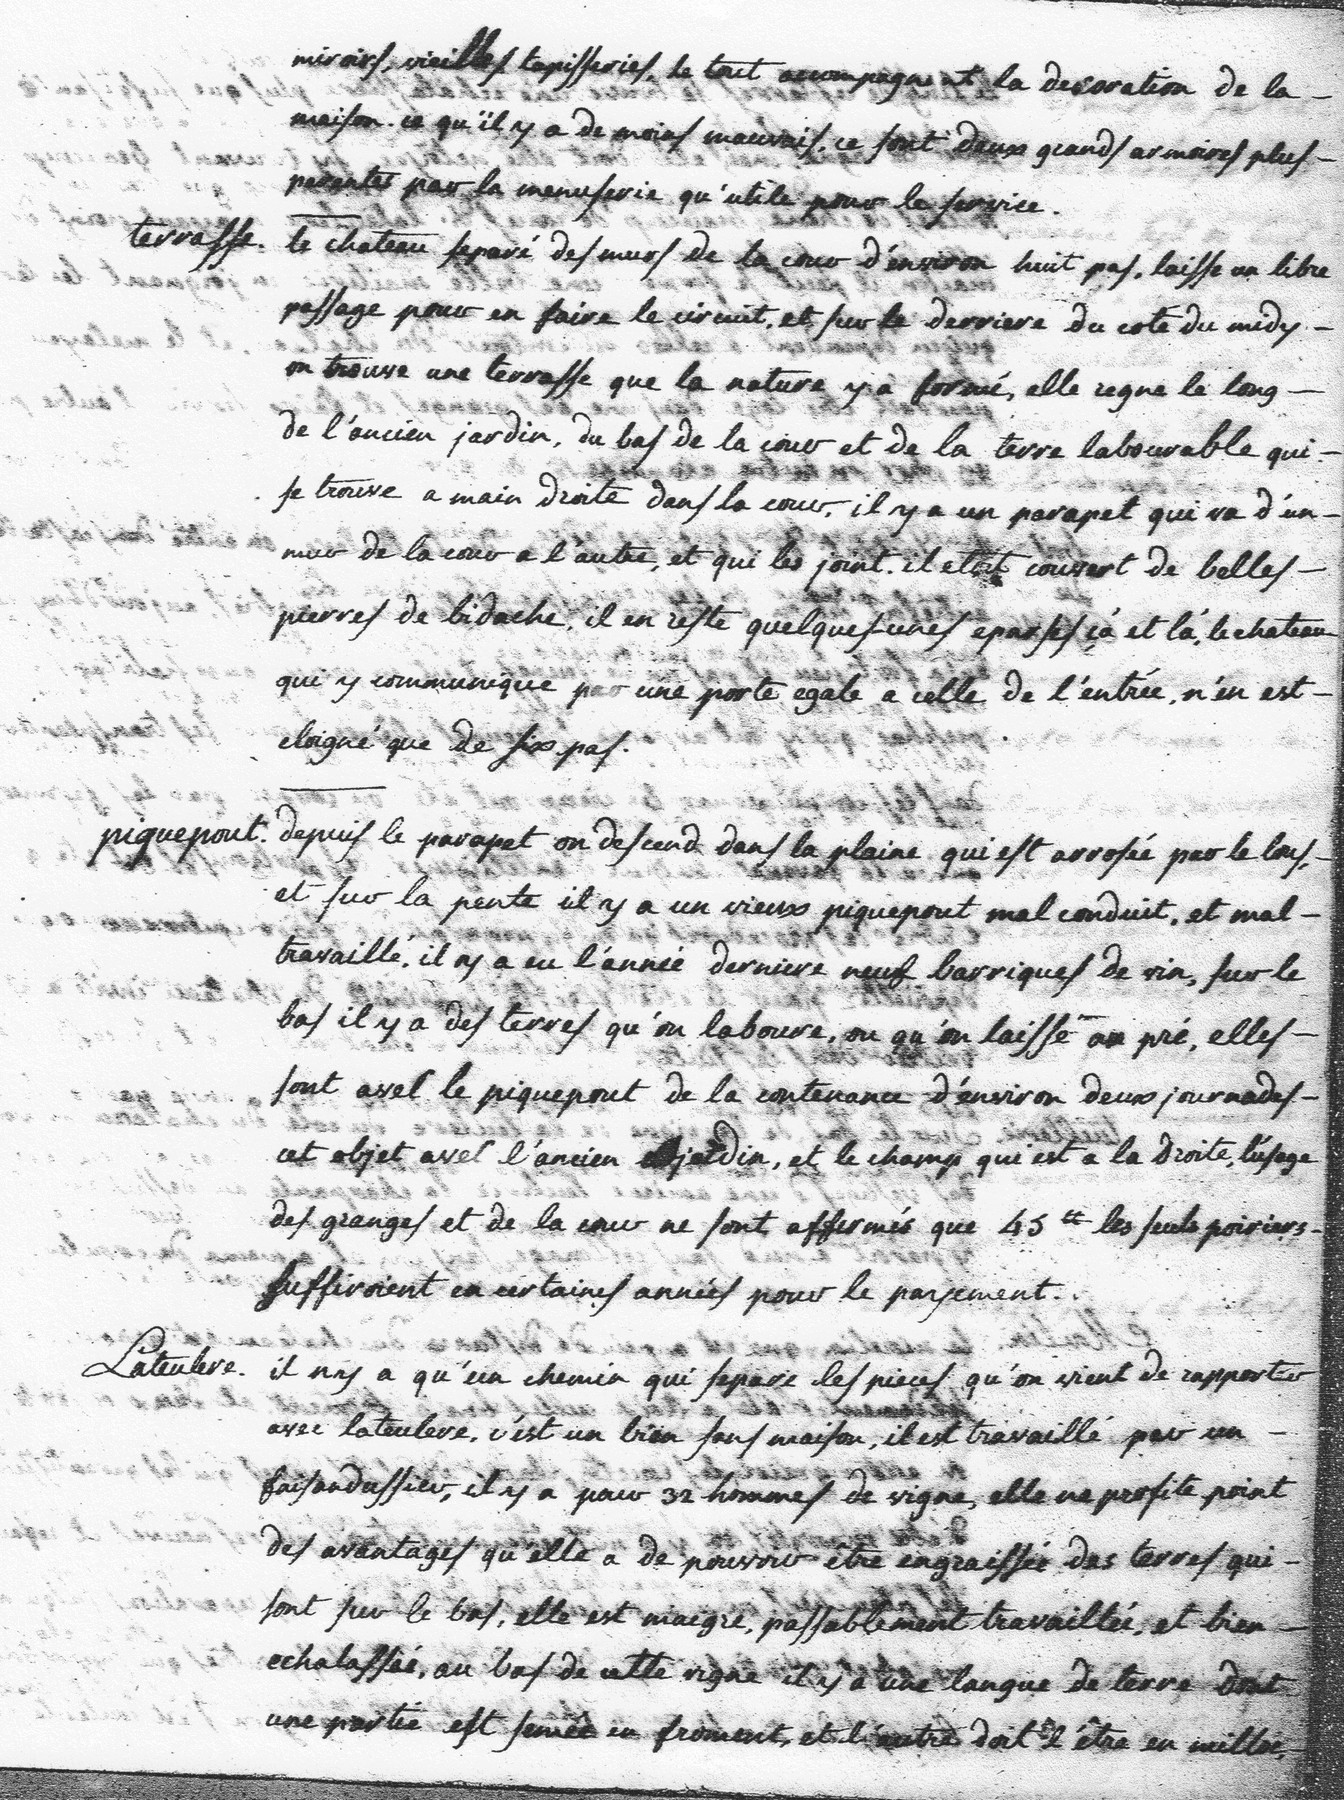 miroirs, vieilles tapisseries, le tout accompagnent la decoration de la -
maison. ce qu'il y a de moins mauvais, ce sont deux grands armoires plus -
pesentes par la menuserie qu'utile pour le service.
terrasse. le chateau separé des murs de la cour d'environ huit pas, laisse un libre
passage pour en faire le circuit, et sur le derriere du coté du midy -
on trouve une terrasse que la nature y a formé, elle regne le long -
de l'ancien jardin, du bas de la cour et de la terre labourable qui -
se trouve a main droite dans la cour, il y a un parapet qui va d'un -
mur de la cour a l'autre, et qui les joint. il etoit couvert de belles -
pierres de bidache, il en reste quelques-unes eparses çà et là, le chateau
qui y communique par une porte egale a celle de l'entrée, n'en est -
eloigné que de six pas.
piquepout. depuis le parapet on descend dans la plaine qui est arrosée par le lous, -
et sur la pente il y a un vieux piquepout mal conduit, et mal -
travaillé, il n'y a eu l'année derniere neuf barriques de vin, sur le
bas il y a des terres qu'on laboure, ou qu'on laisse au pré, elles -
sont avel le piquepout de la contenance d'environ deux journades -
cet objet avel l'ancien jardin, et le champ qui est a la droite, l'usage
des granges et de la cour ne sont affermés que 45 tt les seuls poiriers -
suffiroient en certaines années pour le payement.
Lateulere. il n'y a qu'un chemin qui separe les pieces qu'on vient de rapporter
avec lateulere, c'est un bien sans maison, il est travaillé par un -
faisandussier, il y a pour 32 hommes de vigne, elle ne profite point
des avantages qu'elle a de pouvoir être engraissée des terres qui -
sont sur le bas, elle est maigre, passablement travaillée, et bien -
echalassée, au bas de cette vigne il y a une langue de terre dont
une partie est semée en froment, et l'autre doit l'être en milloc, -